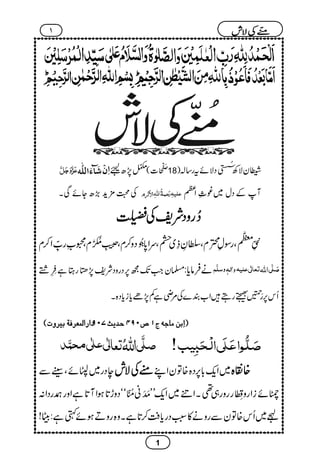 مُنّے کی لاش ۱
اَلْحَمْدُ لِلّٰہِ رَبِّ الْعٰلَمِیْنَ وَالصَّلٰوۃُ وَالسَّلَامُ عَلٰی سَیِّدِ الْمُرْسَلِیْنَ
اَمَّا بَعْدُ فَاَعُوْذُ بِاللّٰہِ مِنَ الشَّیْطٰنِ الرَّجِیْمِ بِسْمِ اللّٰہِ الرَّحْمٰنِ الرَّحِیْمِ
مُنّے کی لاش
شیطان لاکھ سُستی دلائے یہ رسالہ (18صفحات) مکمّل پڑھ لیجئے اِنْ شَآءَاللّٰہ عَزَّوَجَلَّ
آپ کے دل میں غوثِ اعظم کی محبت مزید بڑھ جائے گی۔
دُرُود شریف کی فضیلت
رسولِ محترم، سلطانِ ذی حَشَم، سراپا جُود و کرم، حبیبِ مُکرَّم، محبوبِ ربِّ اکرم
صلَّی اللہ تعالٰی علیہ والہٖ وسلَّم نے فرمایا: مسلمان جب تک مجھ پر درود شریف پڑھتا رہتا ہے فرشتے
اُس پر رَحمتیں بھیجتے رہتے ہیں اب بندے کی مرضی ہے کم پڑھے یا زیادہ۔
(اِبن ماجہ ج۱ ص۴۹۰ حدیث۹۰۷ دارالمعرفۃ بیروت)
صَلُّوا عَلَی الْحَبِیْب ! صَلَّی اللّٰہُ تَعَالٰی عَلٰی مُحَمَّد
خانقاہ میں ایک باپردہ خاتون اپنے مُنّے کی لاش چادر میں لپٹائے، سینے سے
چمٹائے زار و قطار رو رہی تھی۔ اتنے میں ایک ”مَدَنی مُنّا“ دوڑتا ہوا آتا ہے اور ہمدردانہ
لہجے میں اُس خاتون سے رونے کا سبب دریافت کرتا ہے۔ وہ روتے ہوئے کہتی ہے: بیٹا!
1